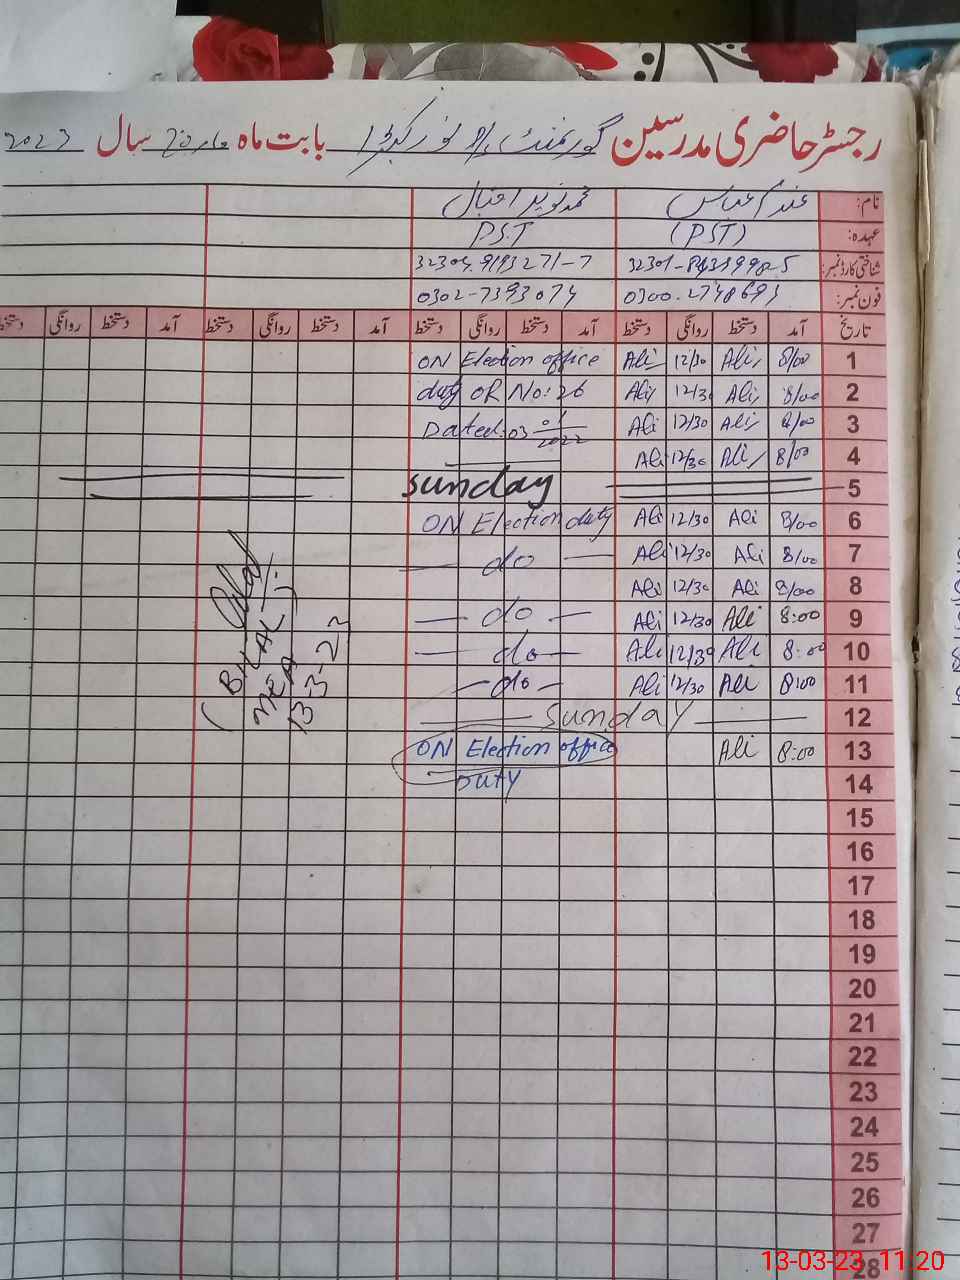 رجسٹر حاضری مدرسین گورنمنٹ بابت ماہ مارچ سال 2023
نام: عباس محمد نوید اقبال
عہدہ: (PST) PST
شناختی کارڈ نمبر:
فون نمبر: 0302-7393074
تاریخ آمد دستخط روانگی دستخط آمد دستخط روانگی دستخط آمد دستخط روانگی دستخط آمد دستخط روانگی دستخط
1 8/00 Ali 12/30 Ali ON Election office
2 8/00 Ali 12/30 Ali duty OR No: 26
3 8/00 Ali 12/30 Ali Dated: 03 01 2022
4 8/00 Ali 12/30 Ali
5 Sunday
6 8/00 Ali 12/30 Ali ON Election duty
7 8/00 Ali 12/30 Ali — do —
8 8/00 Ali 12/30 Ali
9 8:00 Ali 12/30 Ali — do —
10 8:00 Ali 12/30 Ali — do —
11 8:00 Ali 12/30 Ali — do —
12 Sunday
13 8:00 Ali ON Election office
14 Duty
(BILAL)
MEA
13-3-23
15
16
17
18
19
20
21
22
23
24
25
26
27
28
13-03-23 11:20